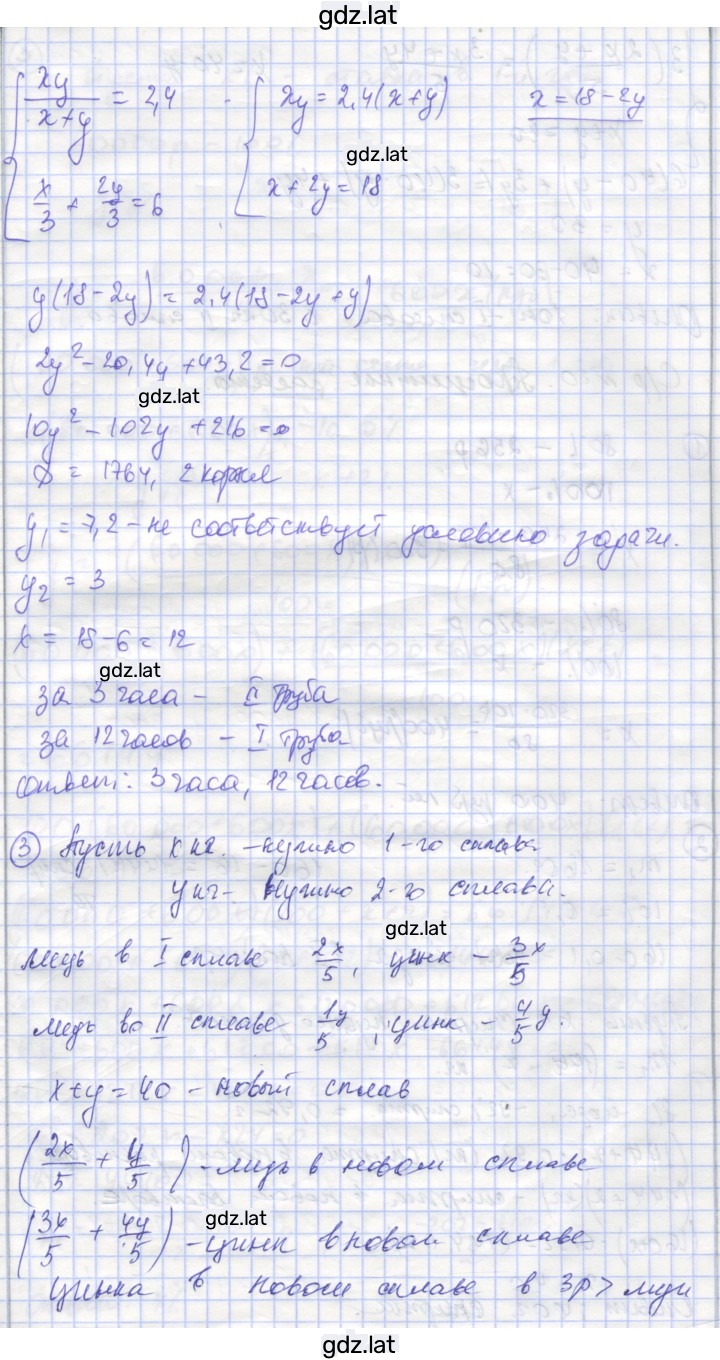 gdz.lat
xy/(x+y) = 2,4   xy = 2,4(x+y)   x = 18 - 2y
gdz.lat
x/3 + 2y/3 = 6   x + 2y = 18
y(18 - 2y) = 2,4(18 - 2y + y)
2y² - 20,4y + 43,2 = 0
gdz.lat
10y² - 102y + 216 = 0
D = 1764, 2 корня
y₁ = 7,2 - не соответствует условию задачи.
y₂ = 3
x = 18 - 6 = 12
gdz.lat
за 3 часа - II труба
за 12 часов - I труба
Ответ: 3 часа, 12 часов.
③ Пусть x кг. - нужно 1-го сплава
y кг - нужно 2-го сплава.
gdz.lat
медь в I сплаве 2x/5, цинк - 3/5 x
медь во II сплаве 1y/5, цинк - 4/5 y.
x + y = 40 - новый сплав
(2x/5 + y/5) - медь в новом сплаве
gdz.lat
(3x/5 + 4y/5) - цинк в новом сплаве
цинка в новом сплаве в 3р > меди
gdz.lat